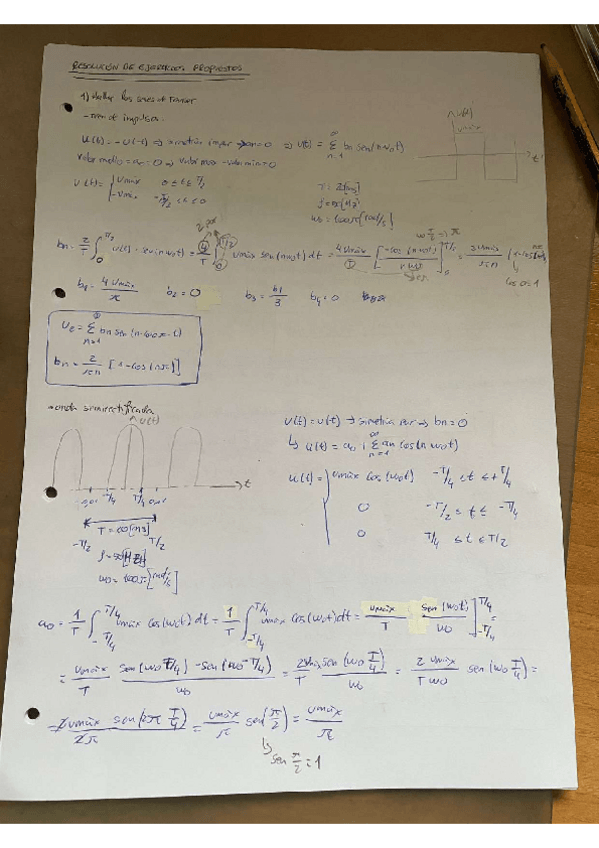 RESOLUCIÓN DE EJERCICIOS PROPUESTOS
1) Hallar las series de Fourier
- tren de impulsos.
u(t)
Vmáx
t
u(t) = -u(-t) ⇒ simetría impar → an=0 ⇒ u(t) = ∞ Σ n=1 bn sen(n w0t)
valor medio = a0 = 0 ⇒
u(t) = { Vmáx 0 ≤ t ≤ T/2
-Vmáx -T/2 < t < 0
T = 20[ms]
f = 50[Hz]
w0 = 100π [rad/s]
bn = 2/T ∫ 0 T/2 u(t) · sen(nw0t) = 4/T ∫ 0 T/2 Vmáx sen(nw0t) dt = 4Vmáx/T [-cos(nw0t)/nw0] 0 T/2 = 2Vmáx/πn
cos 0=1
b1 = 4Vmáx/π b2 = 0 b3 = b1/3 b4 = 0
∞ Σ n=1 bn sen (n·100π·t)
bn = 2/πn [1-cos(nπ)]
- onda semirrectificada
u(t)
t
-T/4 T/4
T = 20[ms]
-T/2 T/2
f = 50[Hz]
w0 = 100π [rad/s]
u(t) = u(t) ⇒ simetría par ⇒ bn = 0
↳ u(t) = a0 + ∞ Σ n=1 an cos(n w0t)
u(t) = { Vmáx cos(w0t) -T/4 ≤ t ≤ +T/4
0 -T/2 ≤ t ≤ -T/4
0 T/4 ≤ t ≤ T/2
a0 = 1/T ∫ -T/4 T/4 Vmáx cos(w0t) dt = 1/T ∫ -T/4 T/4 Vmáx cos(w0t) dt = Vmáx/T sen(w0t)/w0 ] -T/4 T/4 =
= Vmáx/T sen(w0 T/4) - sen(w0 -T/4)/w0 = 2Vmáx sen(w0 T/4)/T w0 = 2 Vmáx/T w0 sen(w0 T/4) =
= 2Vmáx sen(2π T/4)/2π = Vmáx/π sen(π/2) = Vmáx/π
↳ sen π/2 = 1